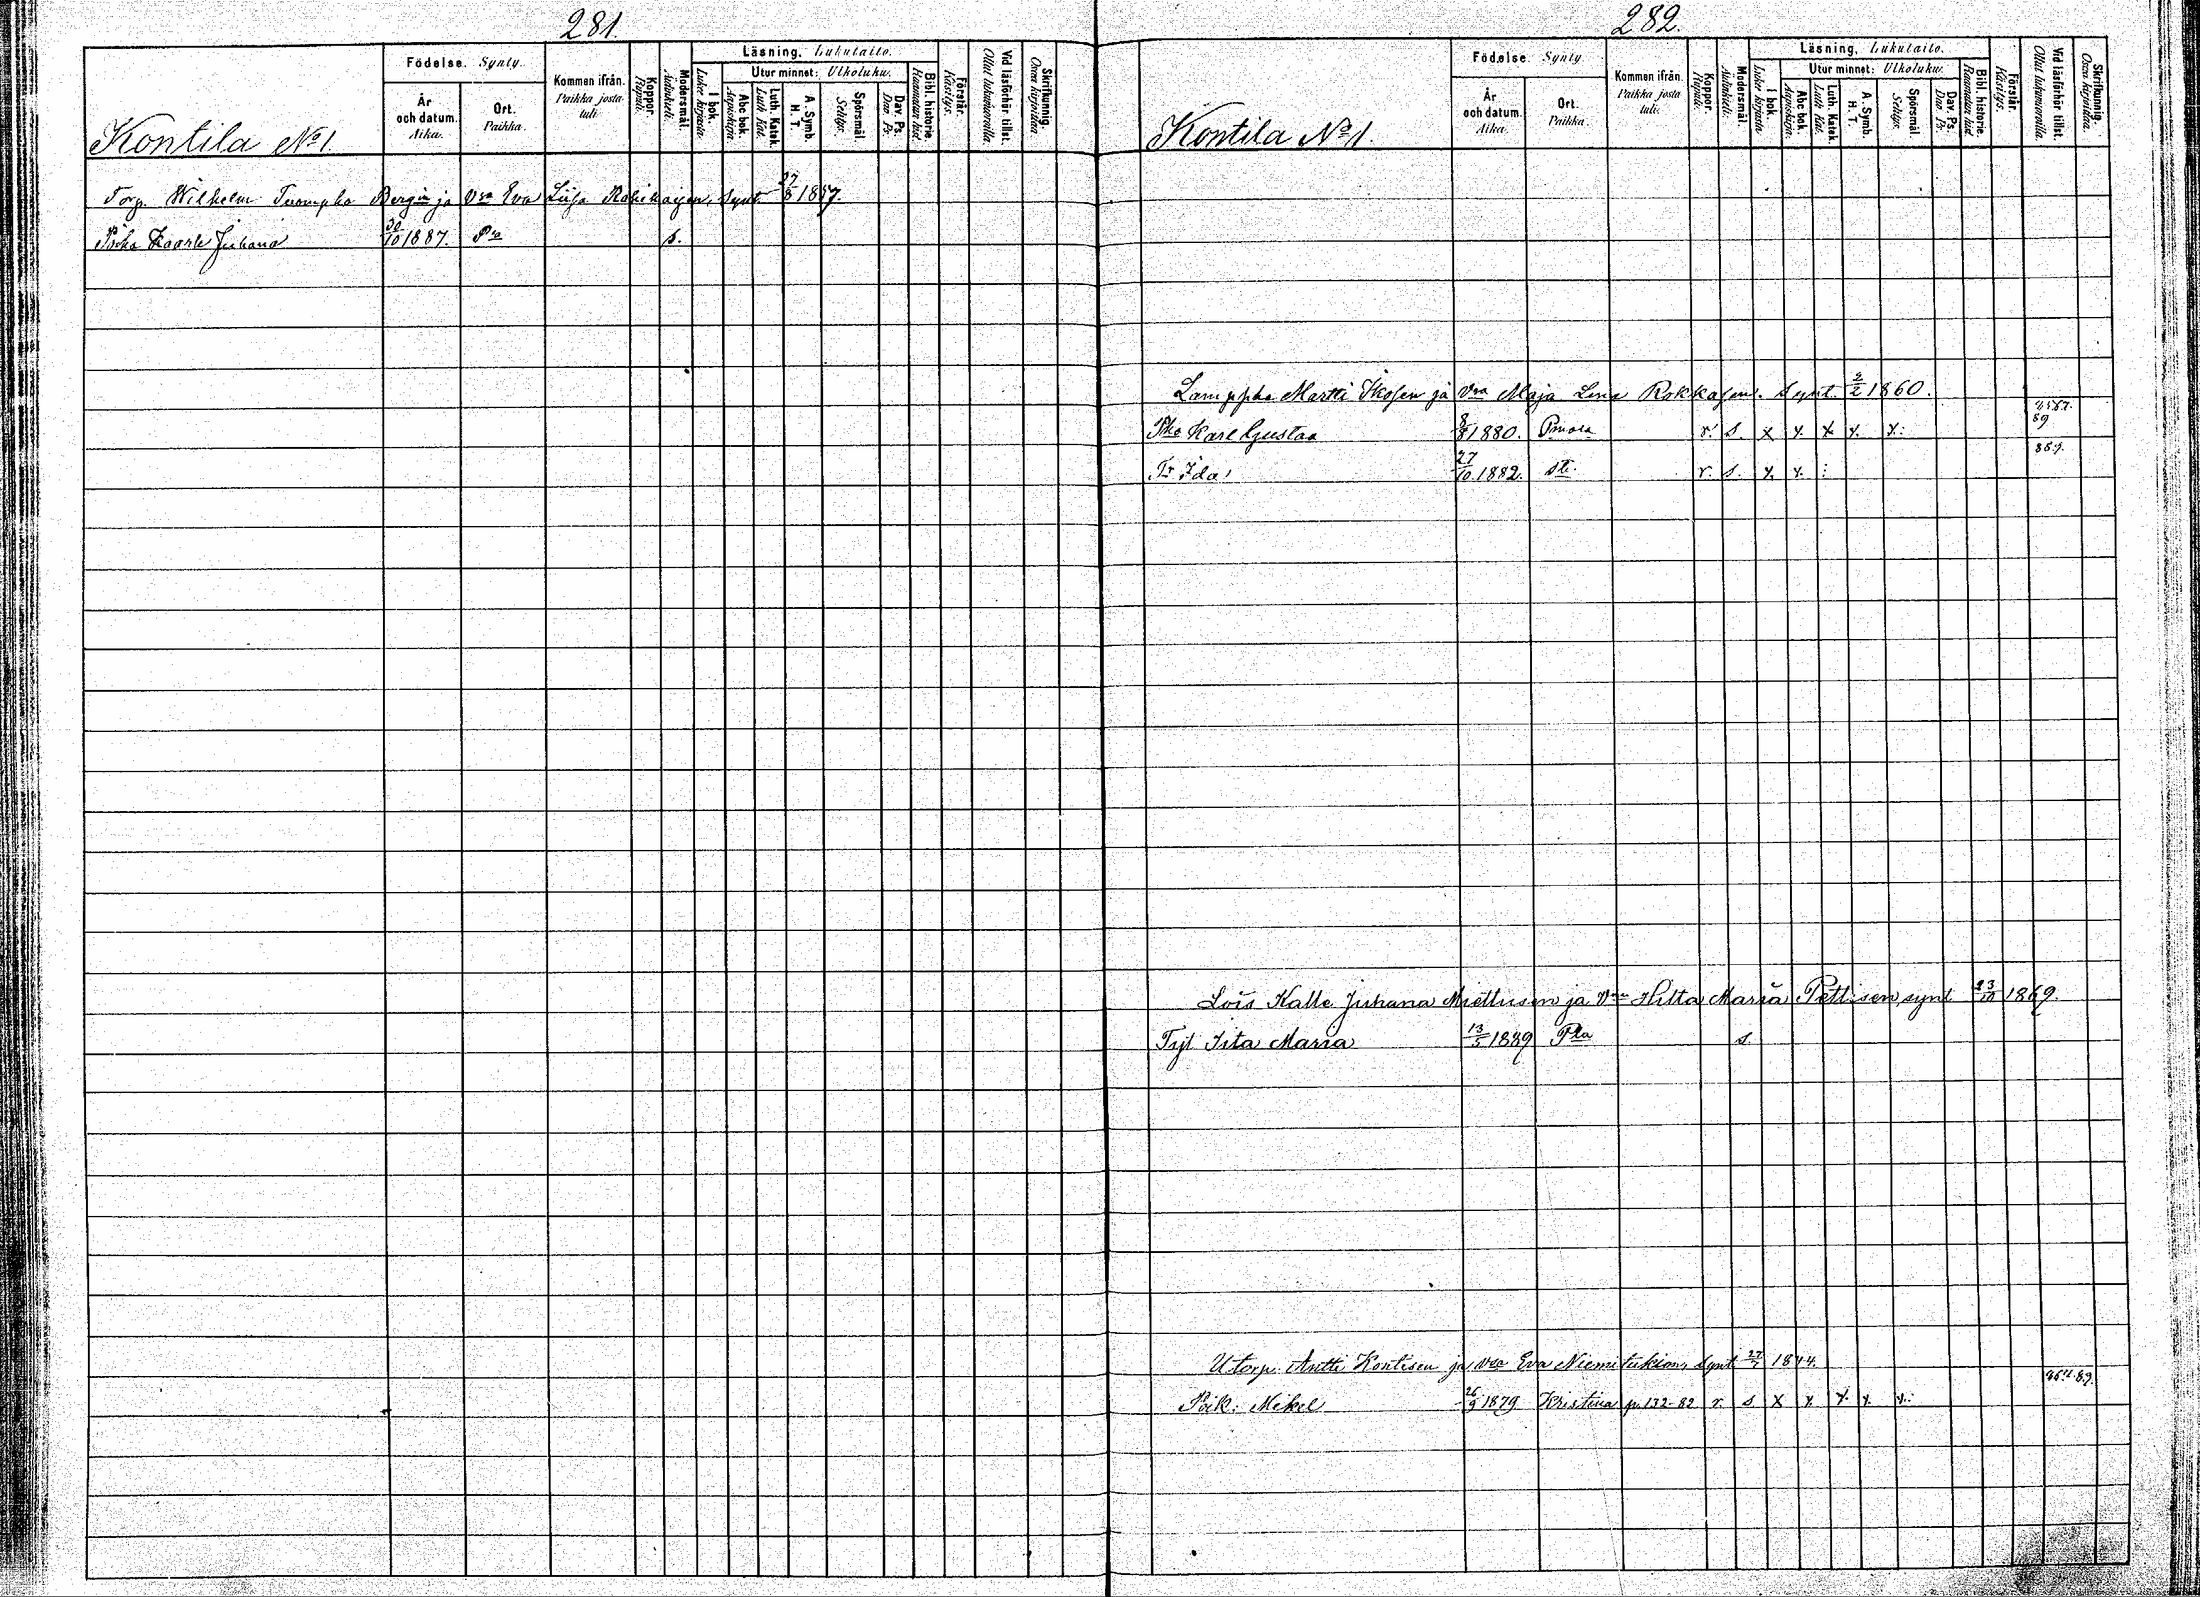 281.
Kontila No 1
Födelse. Synty.
År och datum. Aika.
Ort. Paikka.
Kommen ifrån. Paikka josta tuli.
Koppor. Rupuli.
Modersmål. Äidinkieli.
Läsning. Lukutaito.
I bok. Lukee kirjasta.
Utur minnet: Ulkoluku.
Abc bok. Aapiskirja.
Luth. Katek. Luth. Kat.
A. Symb. H. T.
Spörsmål. Selitys.
Dav. Ps. Dav. Ps.
Bibl. historie. Raamatun hist.
Förstår. Käsitys.
Vid läsförhör tillst. Ollut lukuvuoroilla.
Skrifkunnig. Osaa kirjoittaa.
Torp. Wilhelm Tuompho Bergin ja Vaa Eva Liisa synt. 27/8 1857.
Poika Kaarle Juhana 30/10 1887. Pra s.
282.
Kontila No 1.
Födelse. Synty.
År och datum. Aika.
Ort. Paikka.
Kommen ifrån. Paikka josta tuli.
Koppor. Rupuli.
Modersmål. Äidinkieli.
Läsning. Lukutaito.
I bok. Lukee kirjasta.
Utur minnet: Ulkoluku.
Abc bok. Aapiskirja.
Luth. Katek. Luth. Kat.
A. Symb. H. T.
Spörsmål. Selitys.
Dav. Ps. Dav. Ps.
Bibl. historie. Raamatun hist.
Förstår. Käsitys.
Vid läsförhör tillst. Ollut lukuvuoroilla.
Skrifkunnig. Osaa kirjoittaa.
Martti Ikosen ja Vaa Maja Lena Rokkasen. Synt. 2/2 1860.
Pka Karl Gustaa 8/8 1880. r. s. x x x x x: 89
Tr Ida 27/10 1882. st. r. s. x x : 889.
Lois Kalle Juhana Miettusen ja Vaa Hitta Maria Pettisen synt 23/10 1869.
Tyt Iita Maria 13/5 1889 Pra s.
Utorp. Antti Kontisen ja Vaa Eva synt 27/7 1844.
Poik. Mikel 26/9 1879 Kristina p. 132-82 r. s x x x x x: